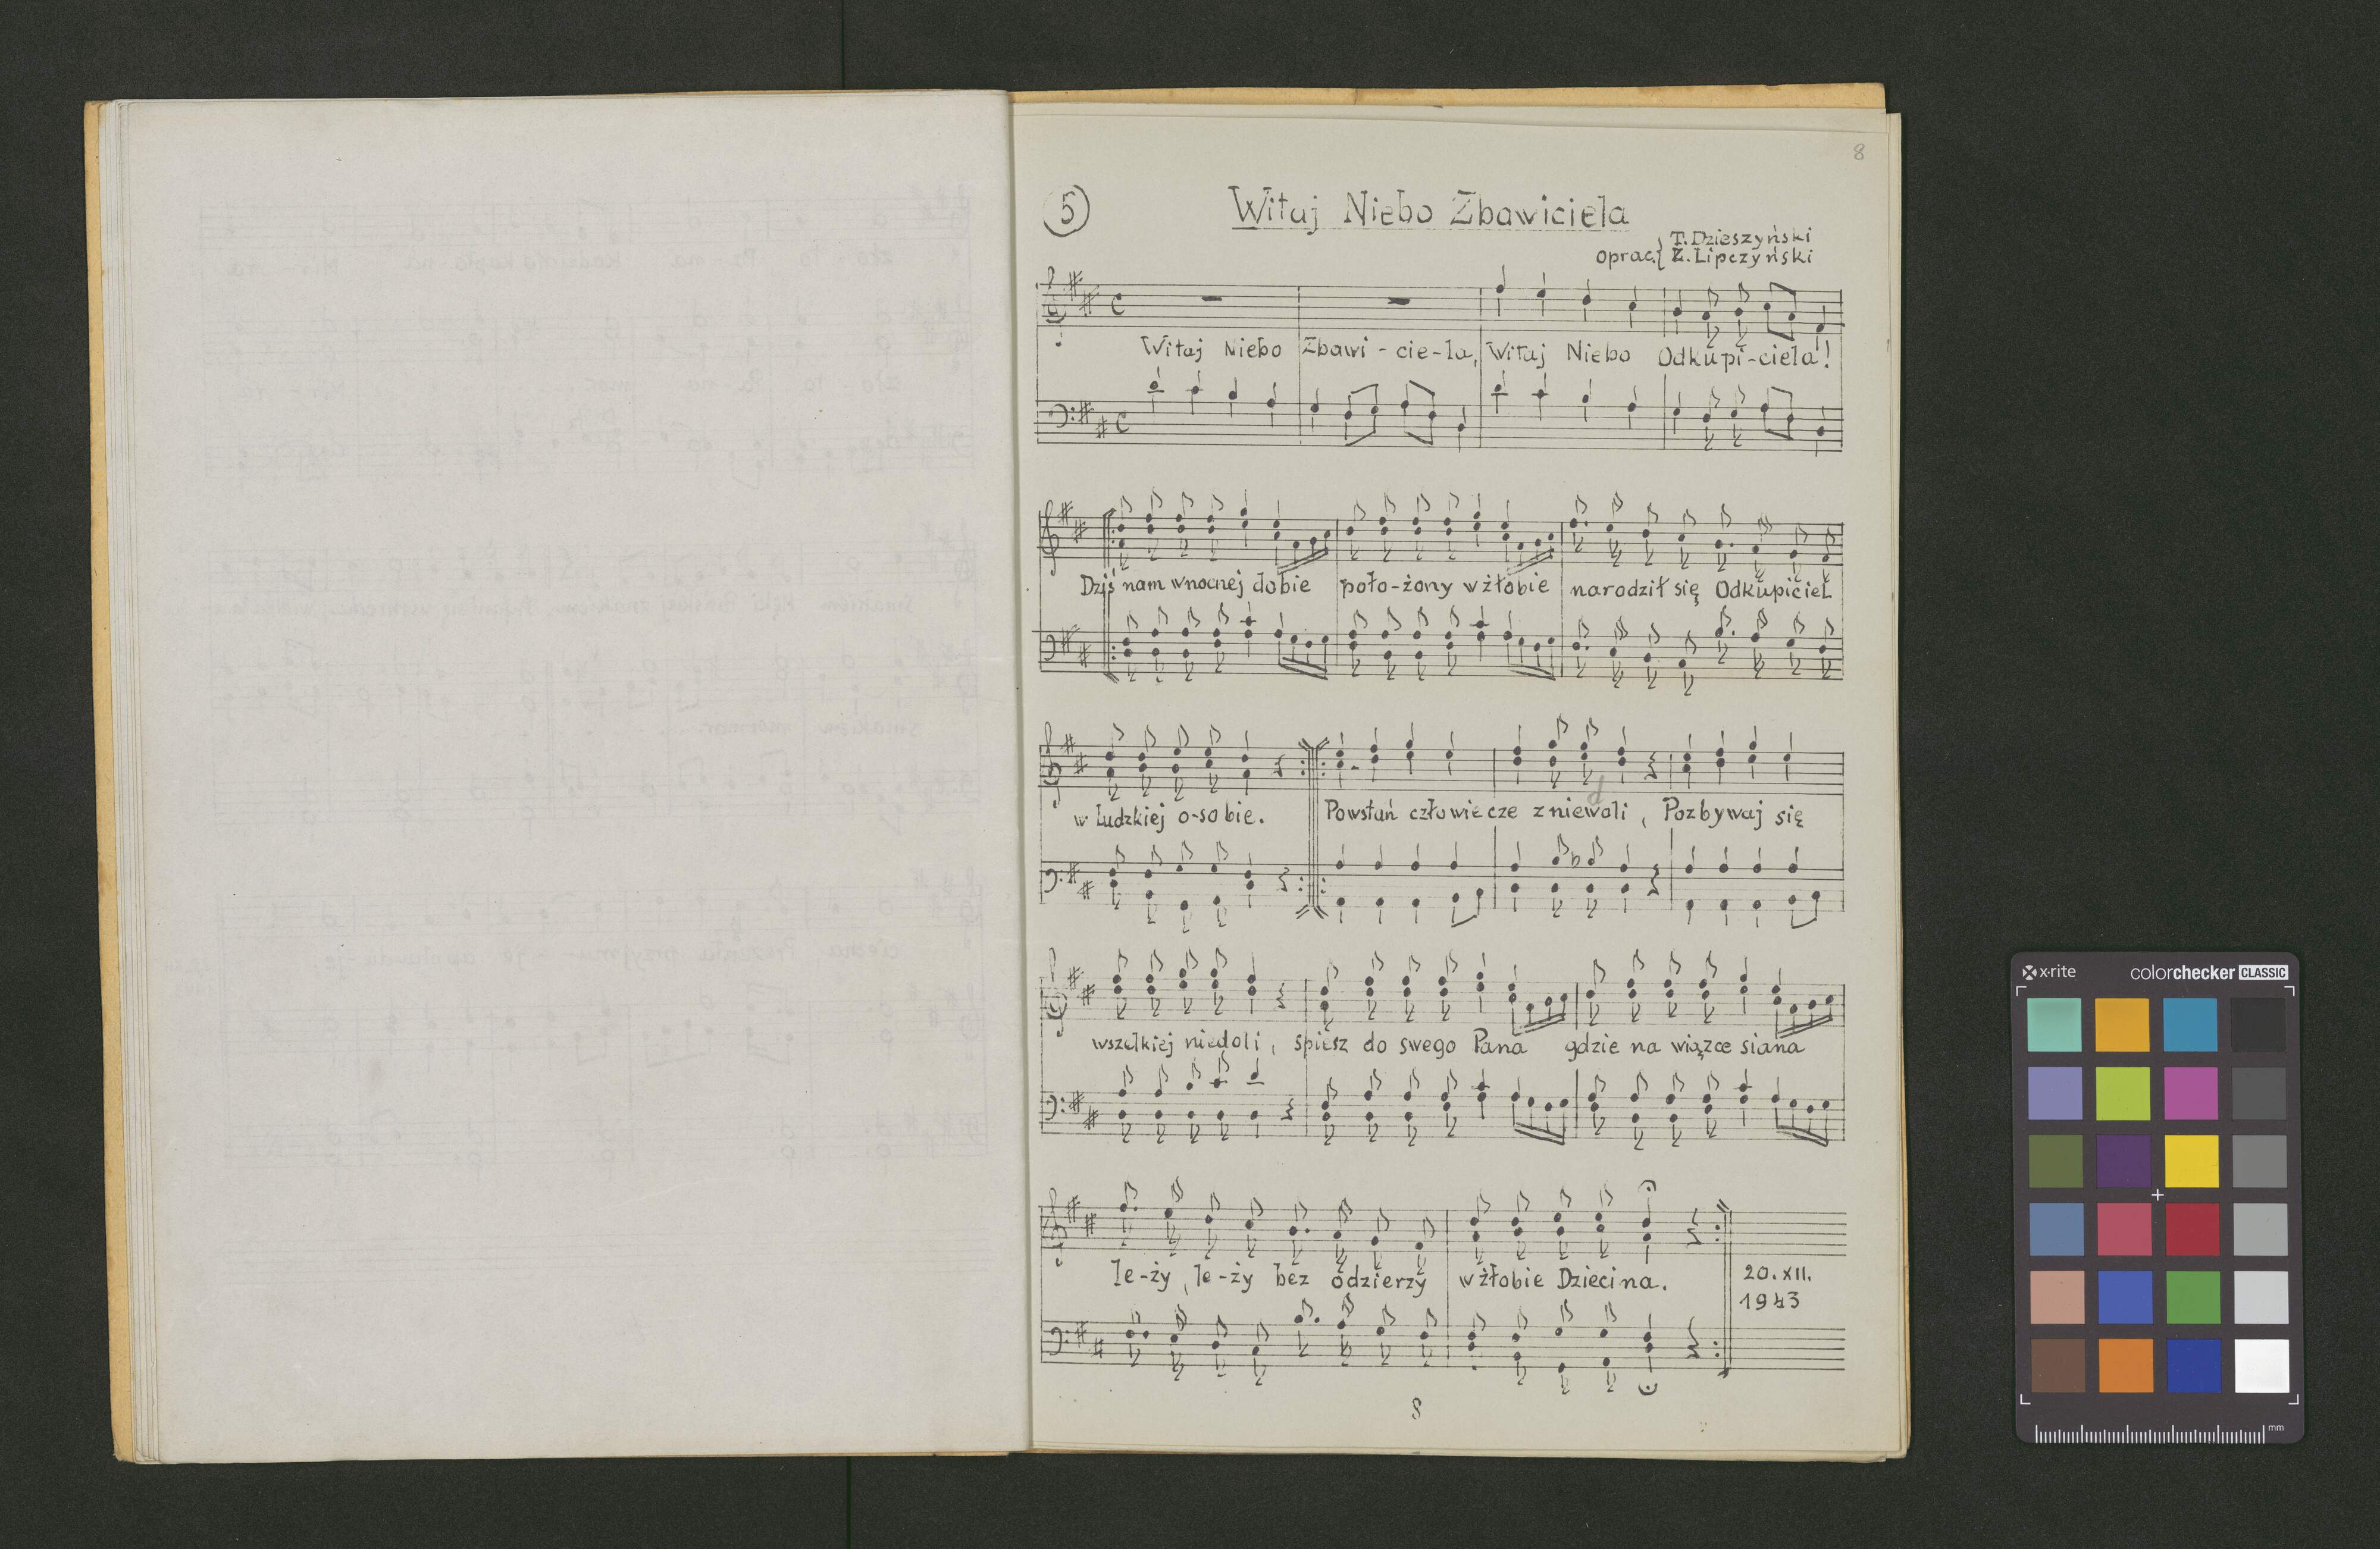 8
5
Witaj Niebo Zbawiciela
oprac. { T. Dzieszyński
Z. Lipczyński
Witaj Niebo Zbawi-cie-la, Witaj Niebo Odkupi-ciela!
Dziś nam w nocnej dobie poło-żony w żłobie narodził się Odkupiciel
w ludzkiej o-sobie. Powstań człowiecze z niewoli, Pozbywaj się
d
wszelkiej niedoli, śpiesz do swego Pana gdzie na wiązce siana
le-ży, le-ży bez odzierzy w żłobie Dziecina.
20.XII.
1943
8
x-rite colorchecker CLASSIC
mm